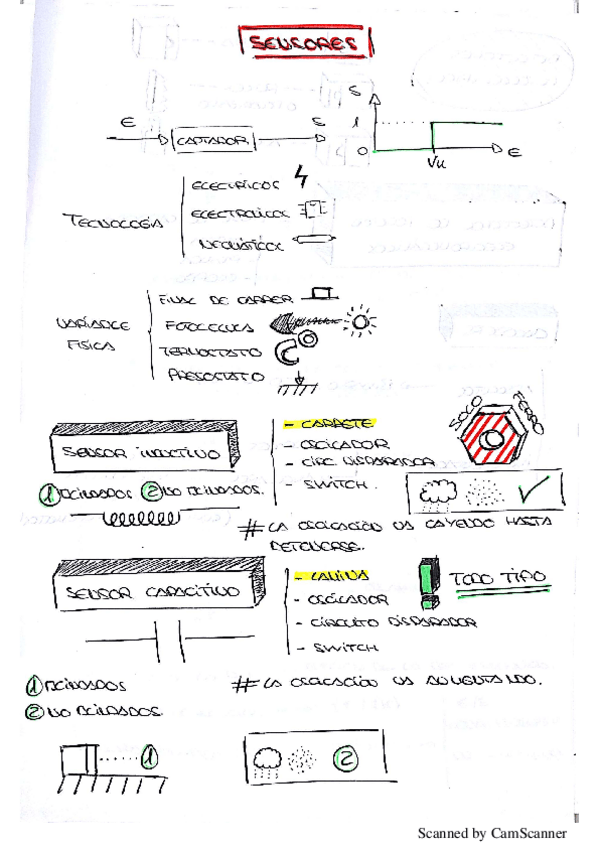 SENSORES
E CAPTADOR S
S
1
0 Vu E
TECNOLOGÍA
ELÉCTRICOS
ELECTRÓNICA
NEUMÁTICA
VARIABLE FÍSICA
FINAL DE CARRER
FOTOCELULA
TERMOSTATO
PRESOSTATO
SENSOR INDUCTIVO
① BLINDADOS ② NO BLINDADOS.
- CARRETE
- OSCILADOR
- CIRC. DISPARADOR
- SWITCH.
SOLO FERRO
# LA OSCILACIÓN VA CAYENDO HASTA
DETENERSE.
SENSOR CAPACITIVO
- LAMINA
- OSCILADOR
- CIRCUITO DISPARADOR
- SWITCH
TODO TIPO
① BLINDADOS
② NO BLINDADOS.
# LA OSCILACIÓN VA AUMENTANDO.
①
②
Scanned by CamScanner